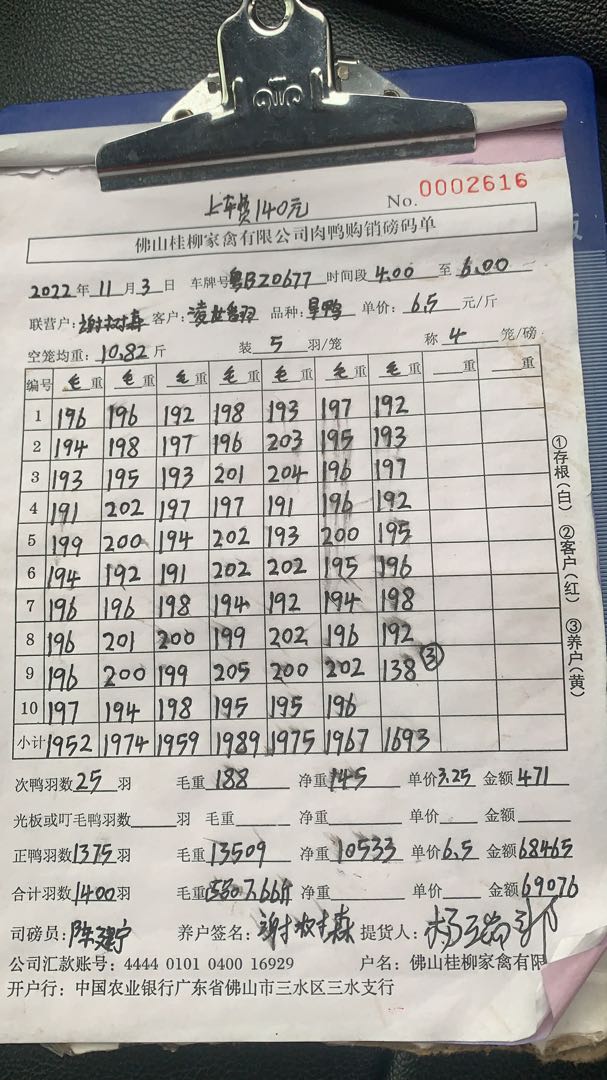 上车费140元
No. 0002616
佛山桂柳家禽有限公司肉鸭购销磅码单
2022年11月3日 车牌号粤BZ0677 时间段4.00至6.00
联营户:谢树森 客户: 品种: 单价:6.5元/斤
空笼均重:10.82斤 装5羽/笼 称4笼/磅
编号 毛重 毛重 毛重 毛重 毛重 毛重 毛重 重 重
1 196 196 192 198 193 197 192
2 194 198 197 196 203 195 193
3 193 195 193 201 204 196 197
4 191 202 197 197 191 196 192
5 199 200 194 202 193 200 195
6 194 192 191 202 202 195 196
7 196 196 198 194 192 194 198
8 196 201 200 199 202 196 192
9 196 200 199 205 200 202 138 ③
10 197 194 198 195 195 196
小计 1952 1974 1959 1989 1975 1967 1693
①存根(白) ②客户(红) ③养户(黄)
次鸭羽数25羽 毛重188 净重145 单价3.25 金额471
光板或叮毛鸭羽数 羽 毛重 净重 单价 金额
正鸭羽数1375羽 毛重13509 净重10533 单价6.5 金额68465
合计羽数1400羽 毛重 净重 单价 金额69076
司磅员: 养户签名:谢树森 提货人:
公司汇款账号:4444 0101 0400 16929 户名:佛山桂柳家禽有限
开户行:中国农业银行广东省佛山市三水区三水支行